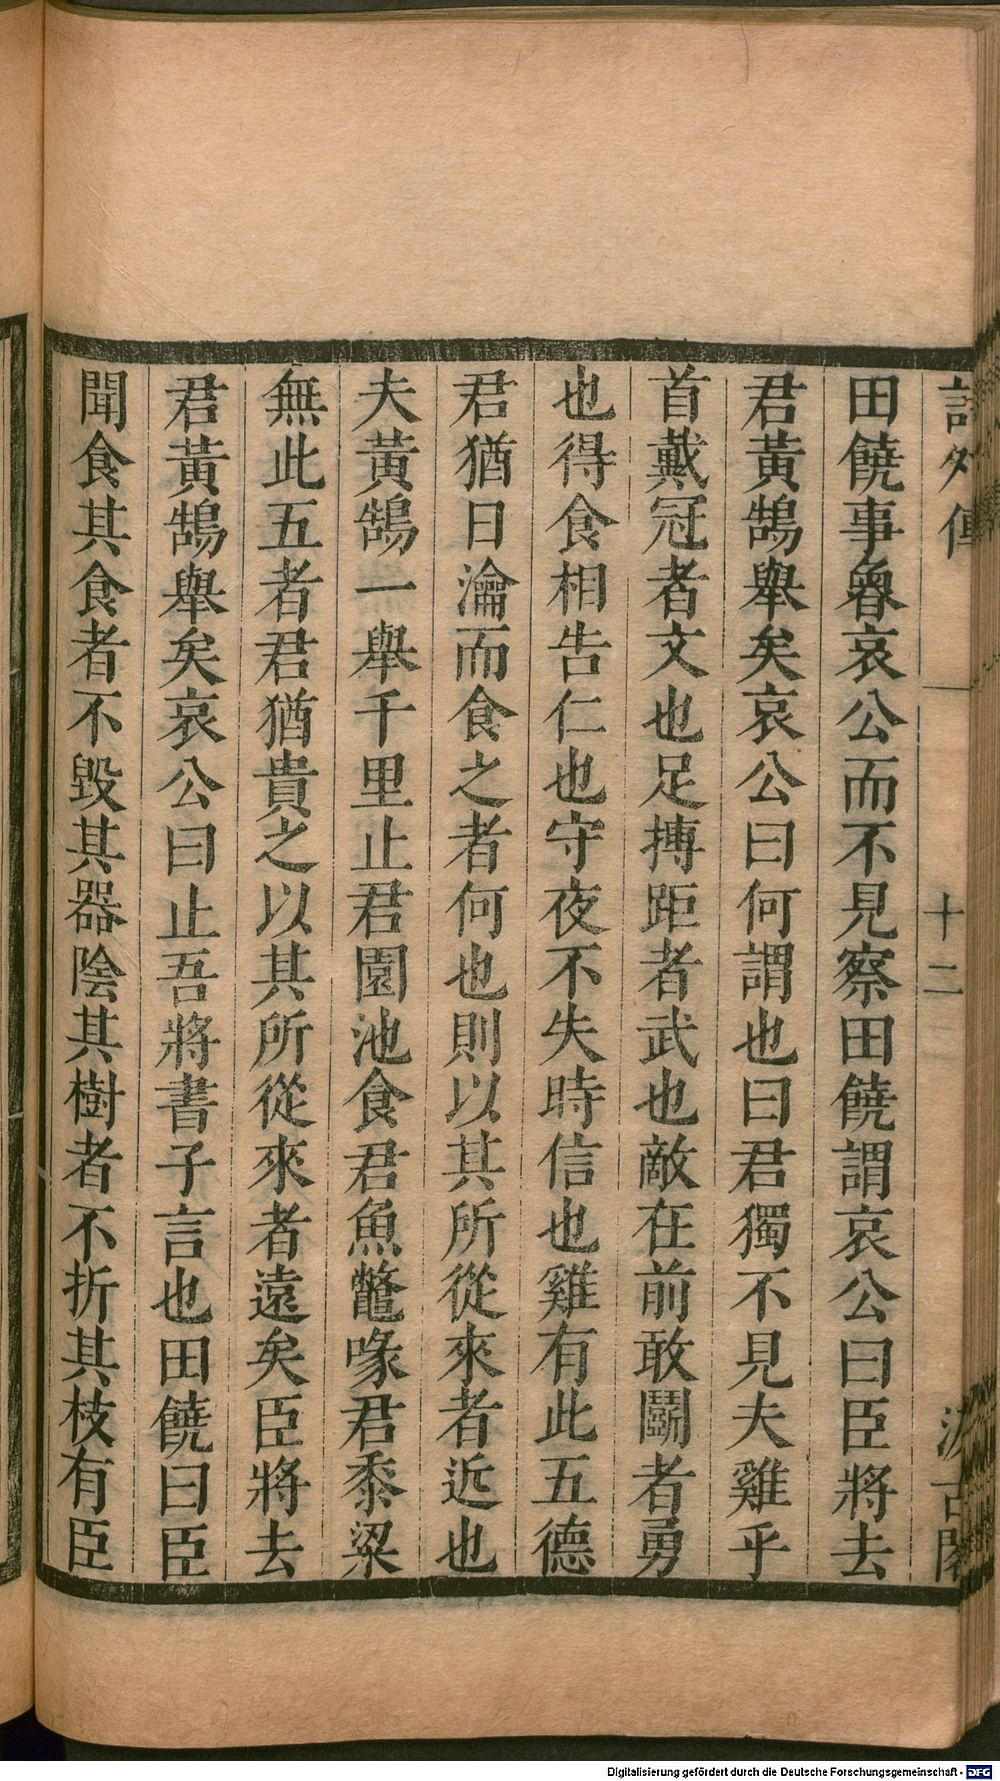 詩外傳 十二 汲古閣
田饒事魯哀公而不見察田饒謂哀公曰臣將去
君黃鵠舉矣哀公曰何謂也曰君獨不見夫雞乎
首戴冠者文也足搏距者武也敵在前敢鬬者勇
也得食相告仁也守夜不失時信也雞有此五德
君猶日瀹而食之者何也則以其所從來者近也
夫黃鵠一舉千里止君園池食君魚鼈喙君黍粱
無此五者君猶貴之以其所從來者遠矣臣將去
君黃鵠舉矣哀公曰止吾將書子言也田饒曰臣
聞食其食者不毀其器陰其樹者不折其枝有臣
Digitalisierung gefördert durch die Deutsche Forschungsgemeinschaft - DFG